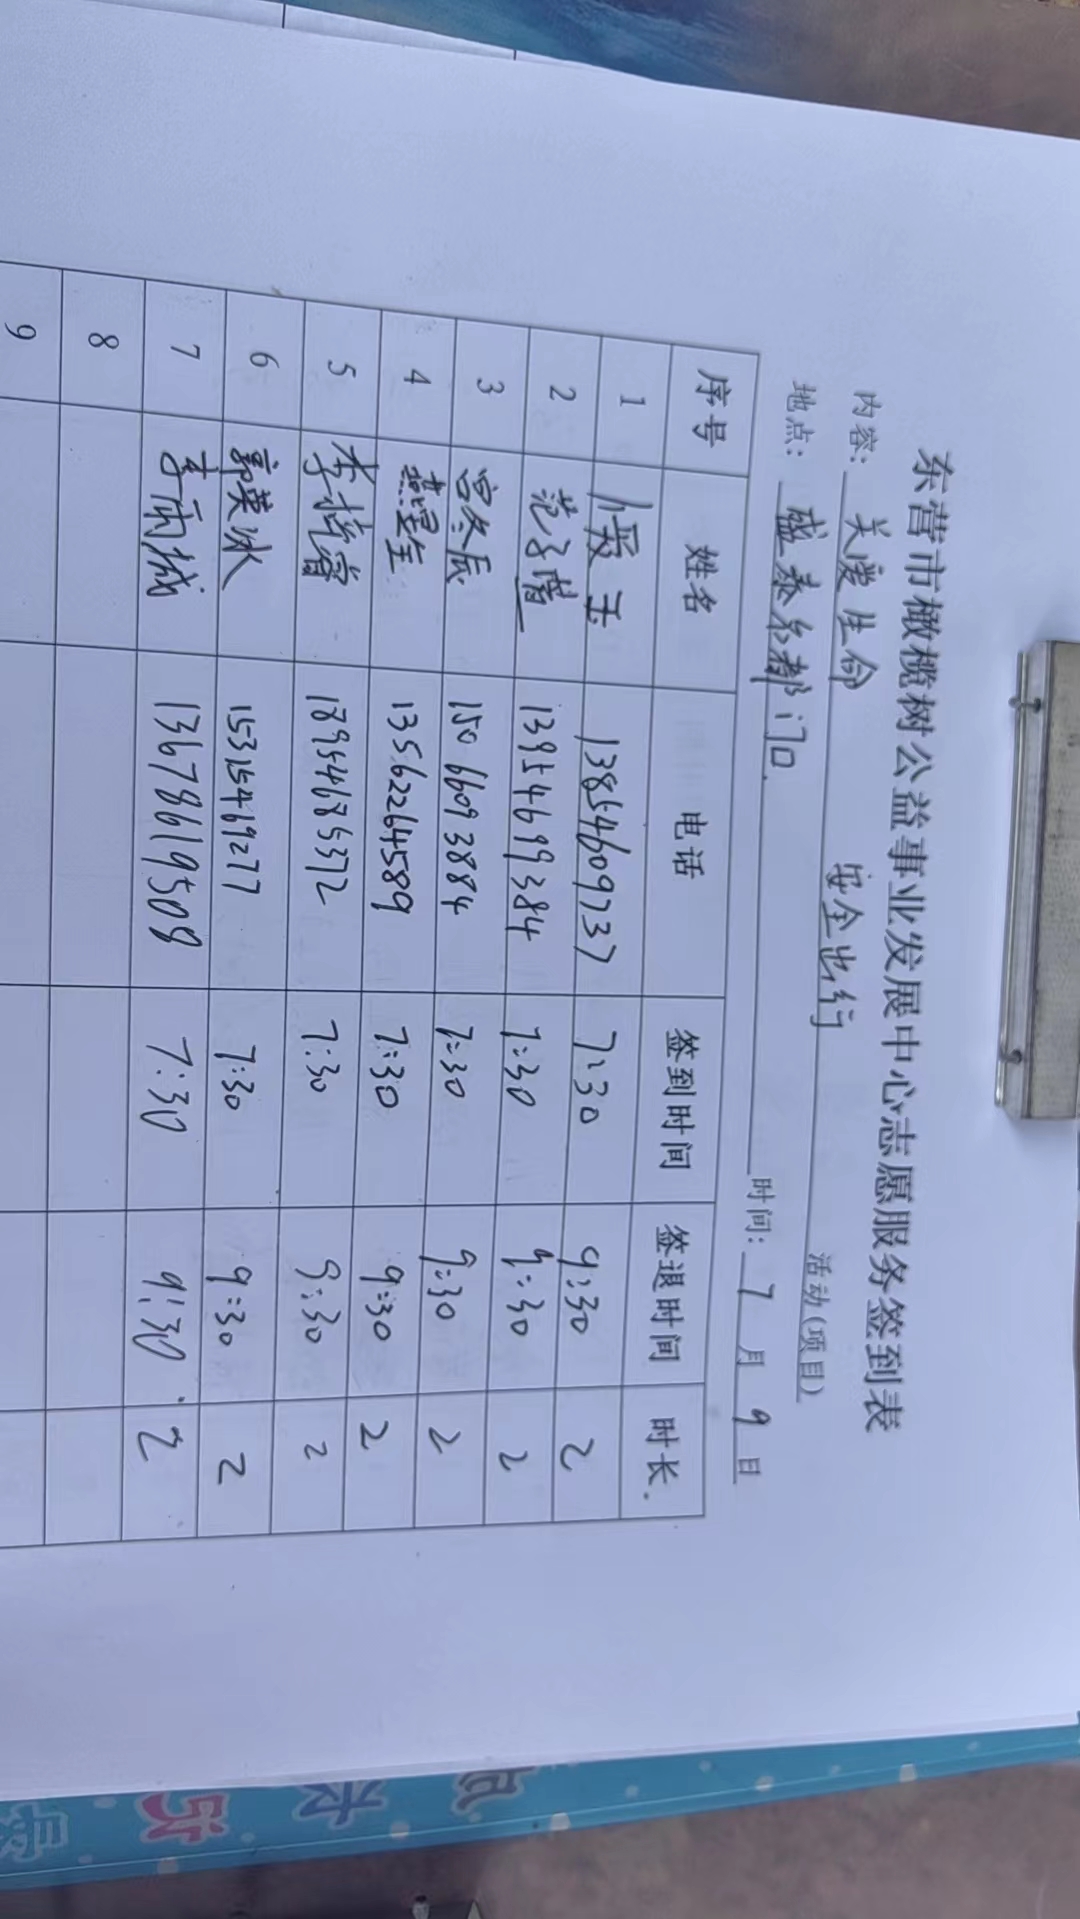 东营市橄榄树公益事业发展中心志愿服务签到表
内容: 关爱生命 安全出行 活动(项目)
地点: 盛泰名都门口 时间: 7月9日
序号 姓名 电话 签到时间 签退时间 时长.
1 王 13854609737 7:30 9:30 2
2 范子 13954699384 7:30 9:30 2
3 宫冬辰 15066093884 7:30 9:30 2
4 燕 13562264589 7:30 9:30 2
5 李梓睿 18954685372 7:30 9:30 2
6 郭英冰 15315469277 7:30 9:30 2
7 李雨城 13678619508 7:30 9:30 2
8
9